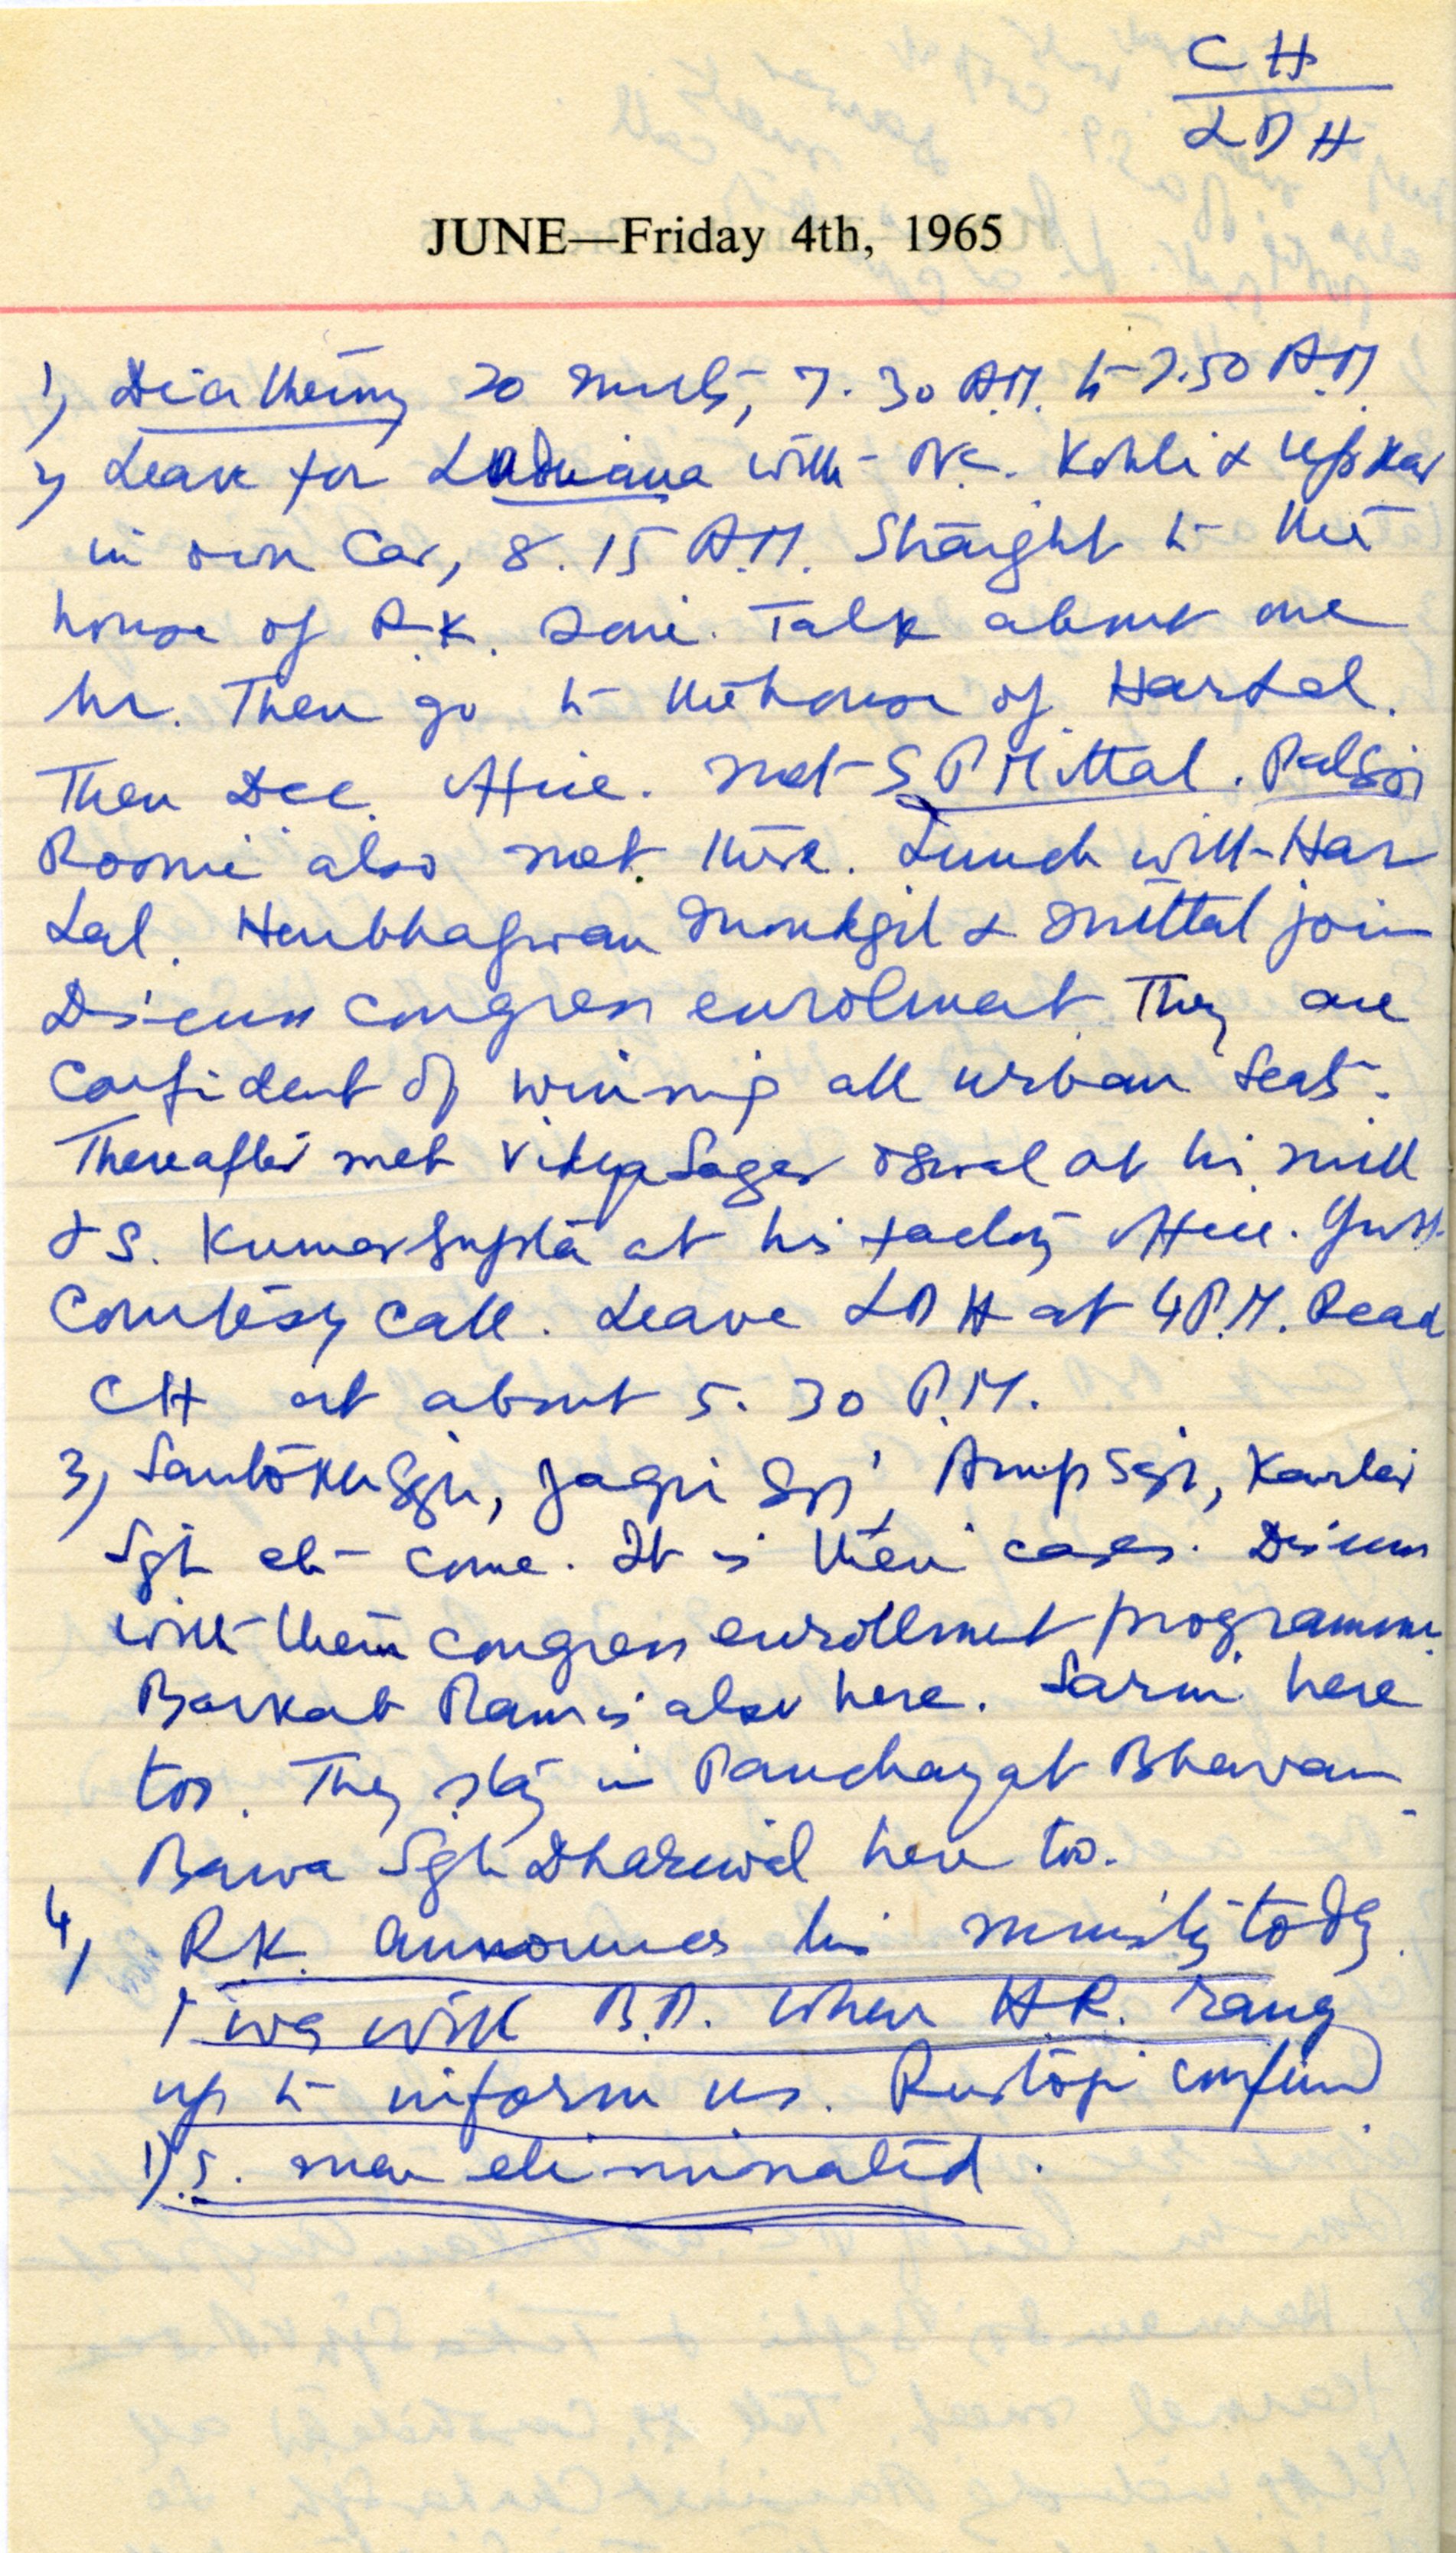 CH
LDH
JUNE—Friday 4th, 1965
1) Diathermy 20 minutes, 7.30 A.M. to 7.50 A.M.
2) Leave for Ludhiana with O.K. Kohli & Upkar
in own Car, 8.15 A.M. Straight to the
house of R.K. Soni. Talk about one
hr. Then go to the house of Har Lal.
Then Dcc. office. Met S P Mittal. Pal Sgh
Roomi also met there. Lunch with Har
Lal. Harbhagwan Moudgil & Mittal join
Discuss congress enrolment. They are
Confident of winning all urban seats.
Thereafter met Vidya Sagar Oswal at his mill
& S. Kumar Gupta at his factory office. Just
Courtesy call. Leave LDH at 4 P.M. Reach
CH at about 5.30 P.M.
3) Santokh Sgh, Jagir Sgh, Anup Sgh, Kartar
Sgh etc come. It is their cases. Discuss
with them congress enrollment programme.
Barkat Ram is also here. Sarmi here
too. They stay in Panchayat Bhavan
Bawa Sgh Dhariwal here too.
4) R.K. announces his ministry today.
I was with B.D. when H.R. rang
up to inform us. Rustogi confirmed
D.S. men eliminated.